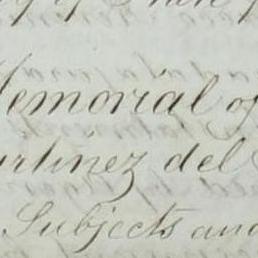 Memorial of
artinez del
Subjects and